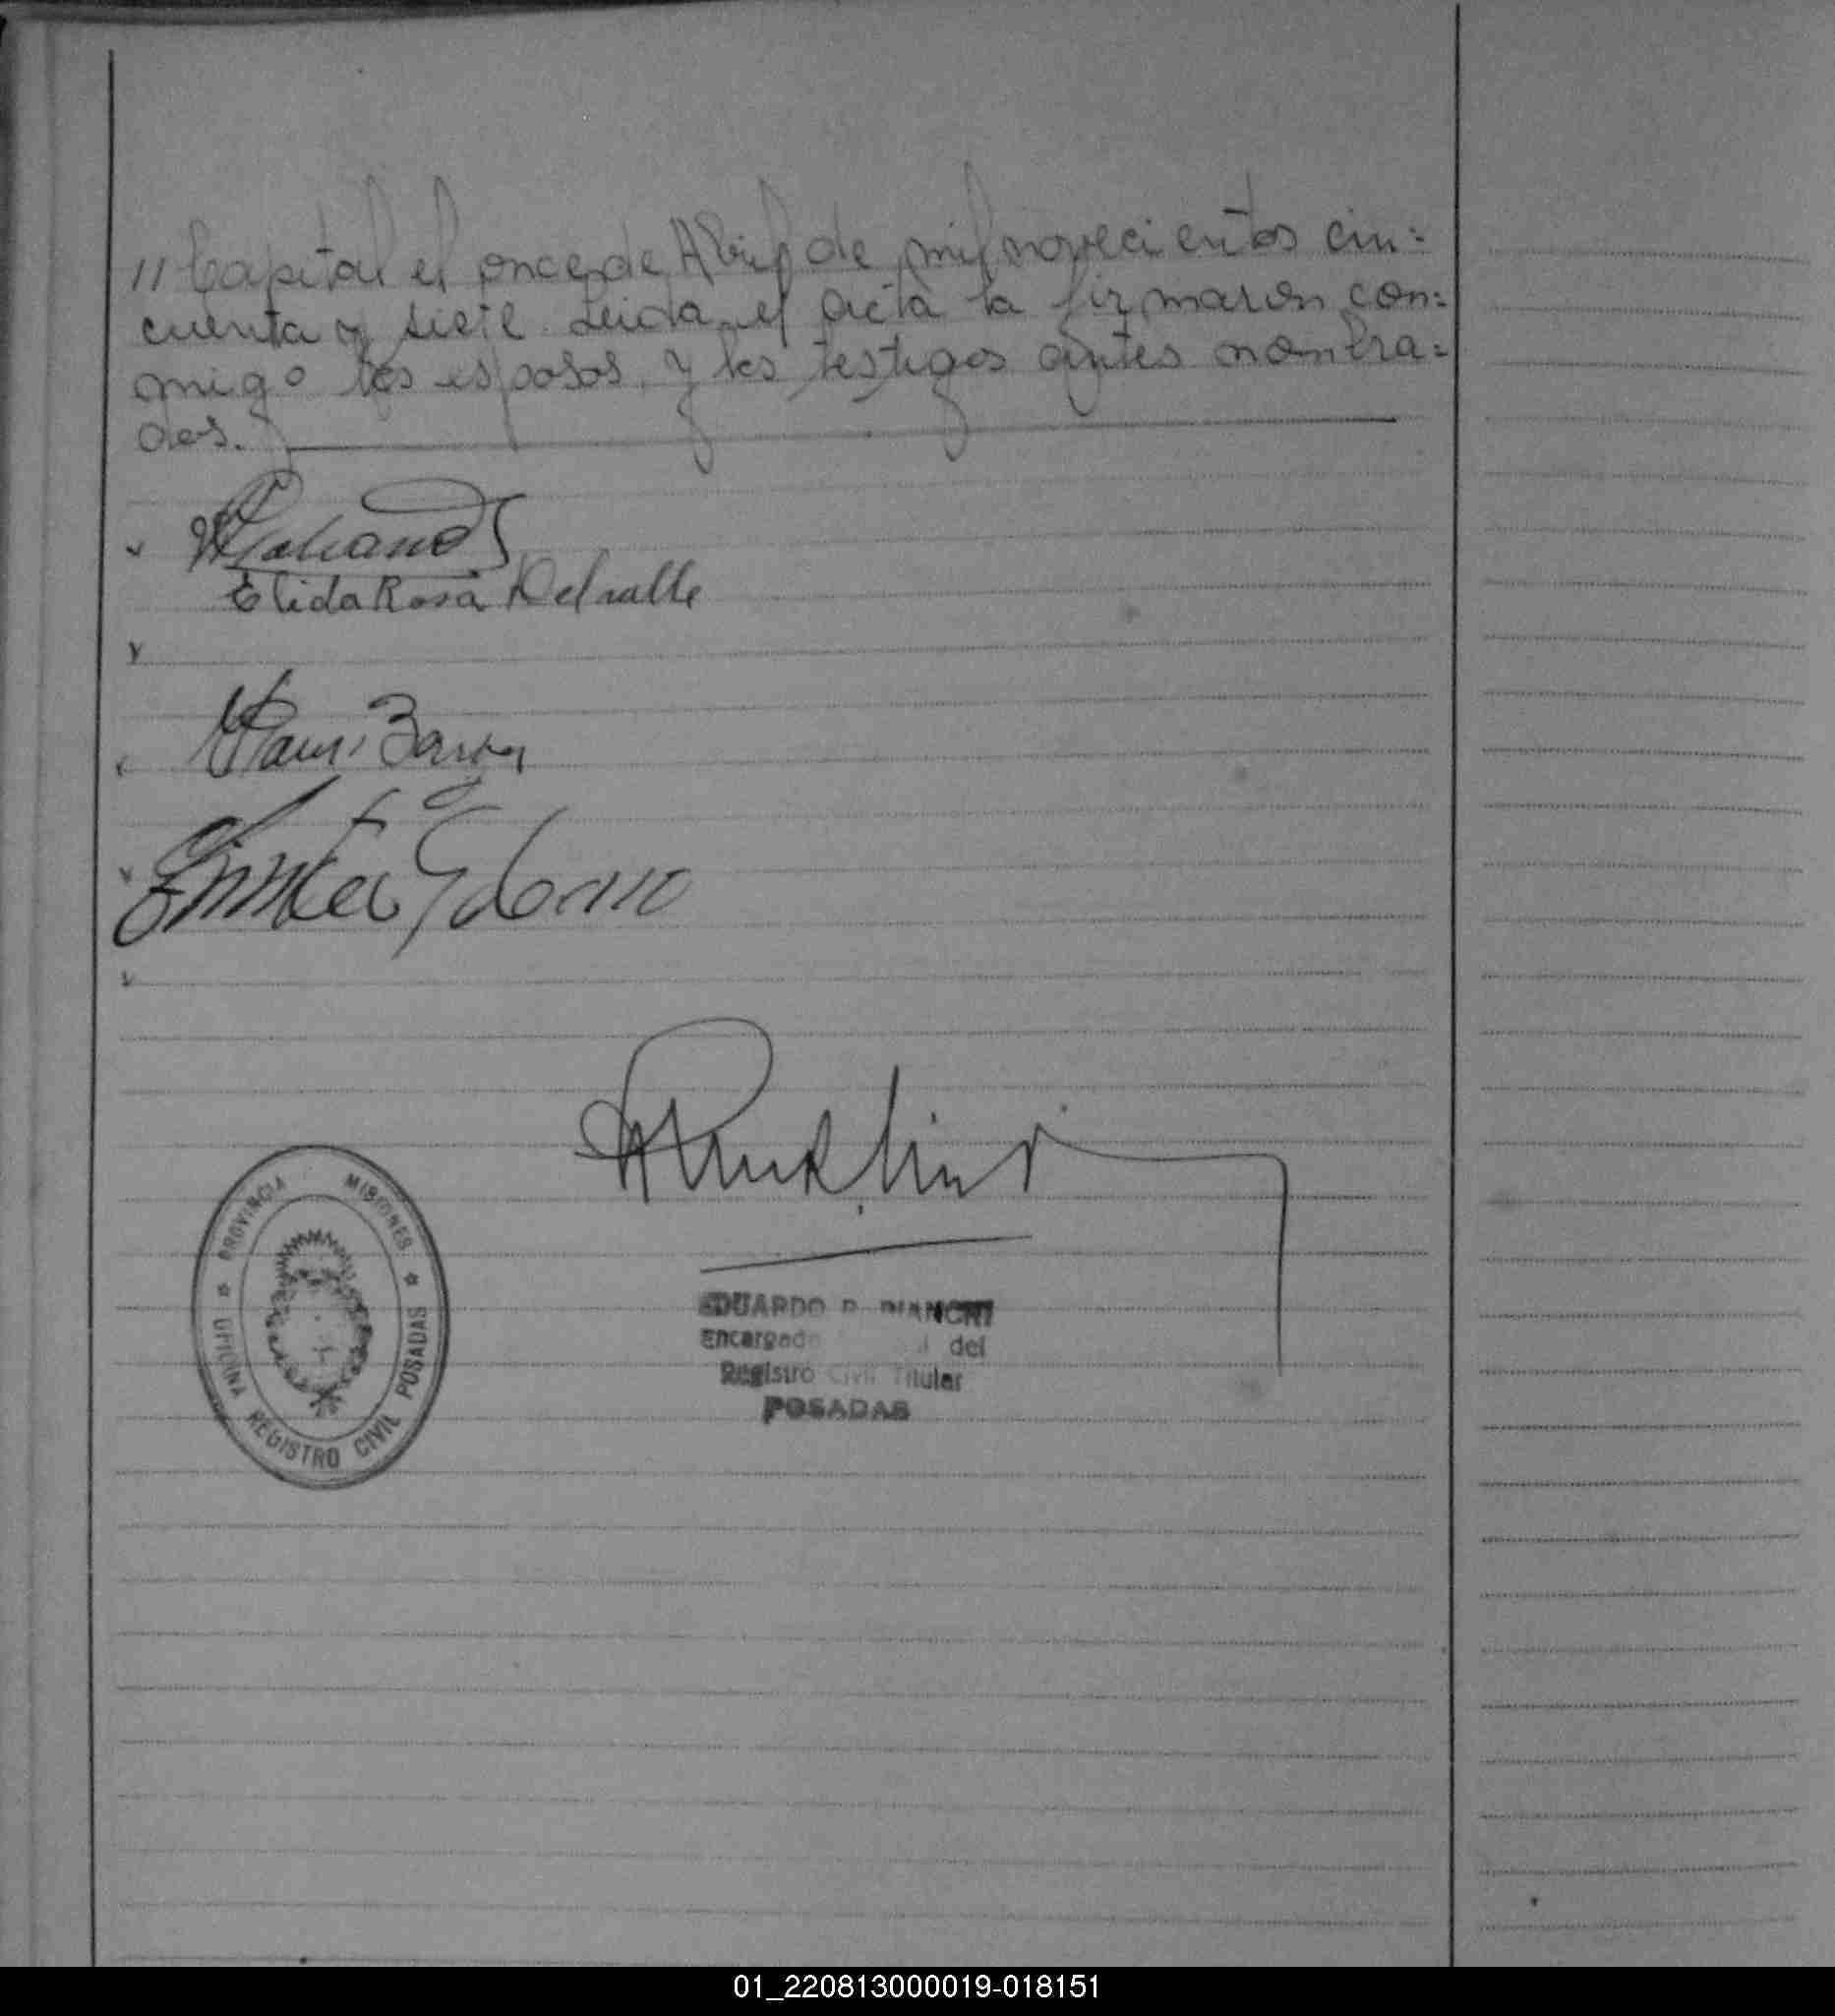 // Capital el once de Abril de mil novecientos cin=
cuenta y siete. Leida el acta la firmaron con=
migo los esposos, y los testigos antes nombra=
dos.
Elida Rosa Delvalle
PROVINCIA MISIONES
OFICINA REGISTRO CIVIL POSADAS
EDUARDO R. BIANCHI
Encargado del
Registro Civil Titular
POSADAS
01_220813000019-018151